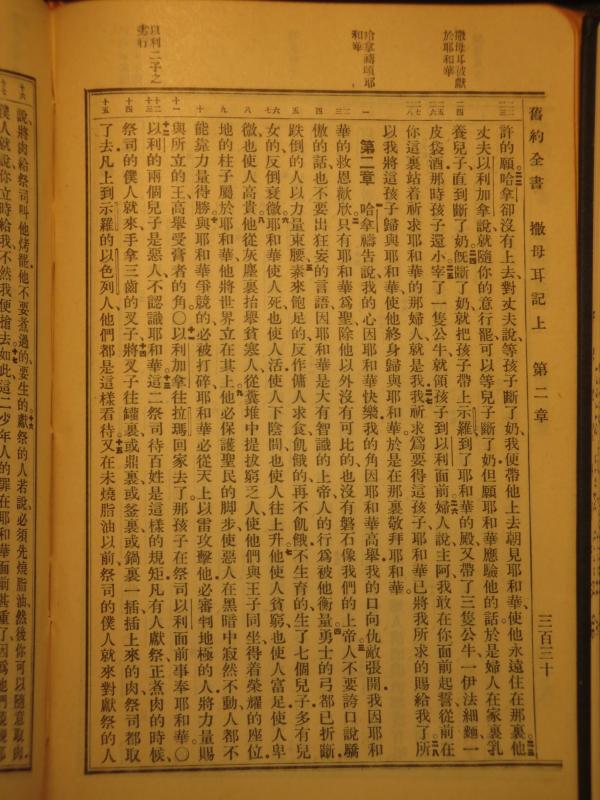 舊約全書 撒母耳記上 第二章 三百三十
撒母耳被獻於耶和華
哈拿禱頌耶和華
以利二子之劣行
許的願、哈拿卻沒有上去、對丈夫說、等孩子斷了奶、我便帶他上去朝見耶和華、使他永遠住在那裏、他
丈夫以利加拿說、就隨你的意行罷、可以等兒子斷了奶、但願耶和華應驗他的話、於是婦人在家裏乳
養兒子、直到斷了奶、旣斷了奶、就把孩子帶上示羅、到了耶和華的殿、又帶了三隻公牛、一伊法細麵、一
皮袋酒、那時孩子還小、宰了一隻公牛、就領孩子到以利面前、婦人說、主阿、我敢在你面前起誓、從前在
你這裏站着祈求耶和華的那婦人、就是我、我祈求爲要得這孩子、耶和華已將我所求的賜給我了、所
以我將這孩子歸與耶和華、使他終身歸與耶和華、於是在那裏敬拜耶和華。
第二章 哈拿禱告說、我的心因耶和華快樂、我的角因耶和華高舉、我的口向仇敵張開、我因耶和
華的救恩歡欣、只有耶和華爲聖、除他以外沒有可比的、也沒有磐石像我們的上帝、人不要誇口說驕
傲的話、也不要出狂妄的言語、因耶和華是大有智識的上帝、人的行爲被他衡量、勇士的弓都已折斷、
跌倒的人以力量束腰、素來飽足的、反作傭人求食、飢餓的、再不飢餓、不生育的、生了七個兒子、多有兒
女的、反倒衰微、耶和華使人死、也使人活、使人下陰間、也使人往上升、他使人貧窮、也使人富足、使人卑
微、也使人高貴、他從灰塵裏抬舉貧寒人、從糞堆中提拔窮乏人、使他們與王子同坐、得着榮耀的座位、
地的柱子屬於耶和華、他將世界立在其上、他必保護聖民的脚步、使惡人在黑暗中寂然不動、人都不
能靠力量得勝、與耶和華爭競的、必被打碎、耶和華必從天上以雷攻擊他、必審判地極的人、將力量賜
與所立的王、高舉受膏者的角、〇以利加拿往拉瑪回家去了、那孩子在祭司以利面前事奉耶和華、〇
以利的兩個兒子是惡人、不認識耶和華、這二祭司待百姓是這樣的規矩、凡有人獻祭、正煮肉的時候、
祭司的僕人就來、手拿三齒的叉子、將叉子往罐裏、或鼎裏、或釜裏、或鍋裏一插、插上來的肉、祭司都取
了去、凡上到示羅的以色列人、他們都是這樣看待、又在未燒脂油以前、祭司的僕人就來對獻祭的人
說、將肉給祭司、叫他烤罷、他不要煮過的、要生的、獻祭的人若說、必須先燒脂油、然後你可以隨意取肉、
僕人就說、你立時給我、不然我便搶去、如此這二少年人的罪在耶和華面前甚重了、因爲他們